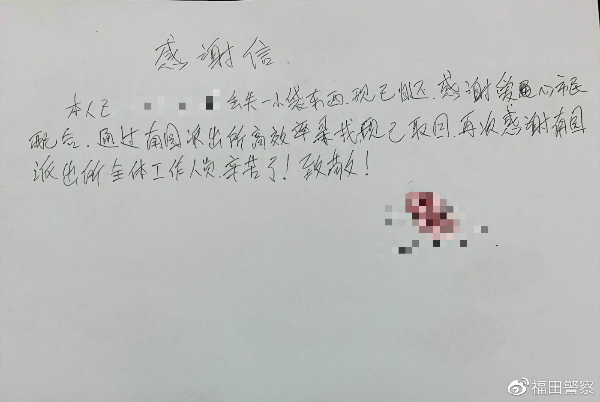 感谢信
本人已 丢失一小袋东西.现已 .感谢爱心市民
配合.通过南园派出所高效率 我现已取回.再次感谢南园
派出所全体工作人员.辛苦了!致敬!
福田警察